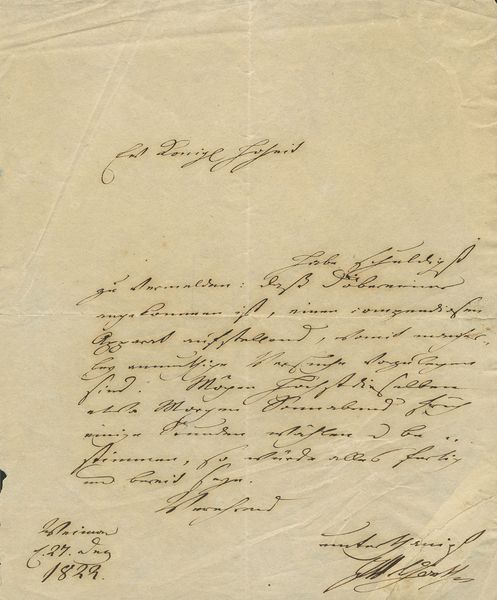 Ew Königl Hoheit
habe schuldigst
zu vermelden: daß Döbereiner
angekommen ist, einen compendiosen
Apparat aufstellend, womit mancher-
ley anmuthige Versuche vorzulegen
sind. Mögen Höchstdieselben
etwa Morgen Sonnabend früh
einige Stunden wählen u be-
stimmen, so würde alles fertig
und bereit seyn.
Verehrend
Weimar
d. 27. Dez
1822.
unterthänigst
JWvGoethe